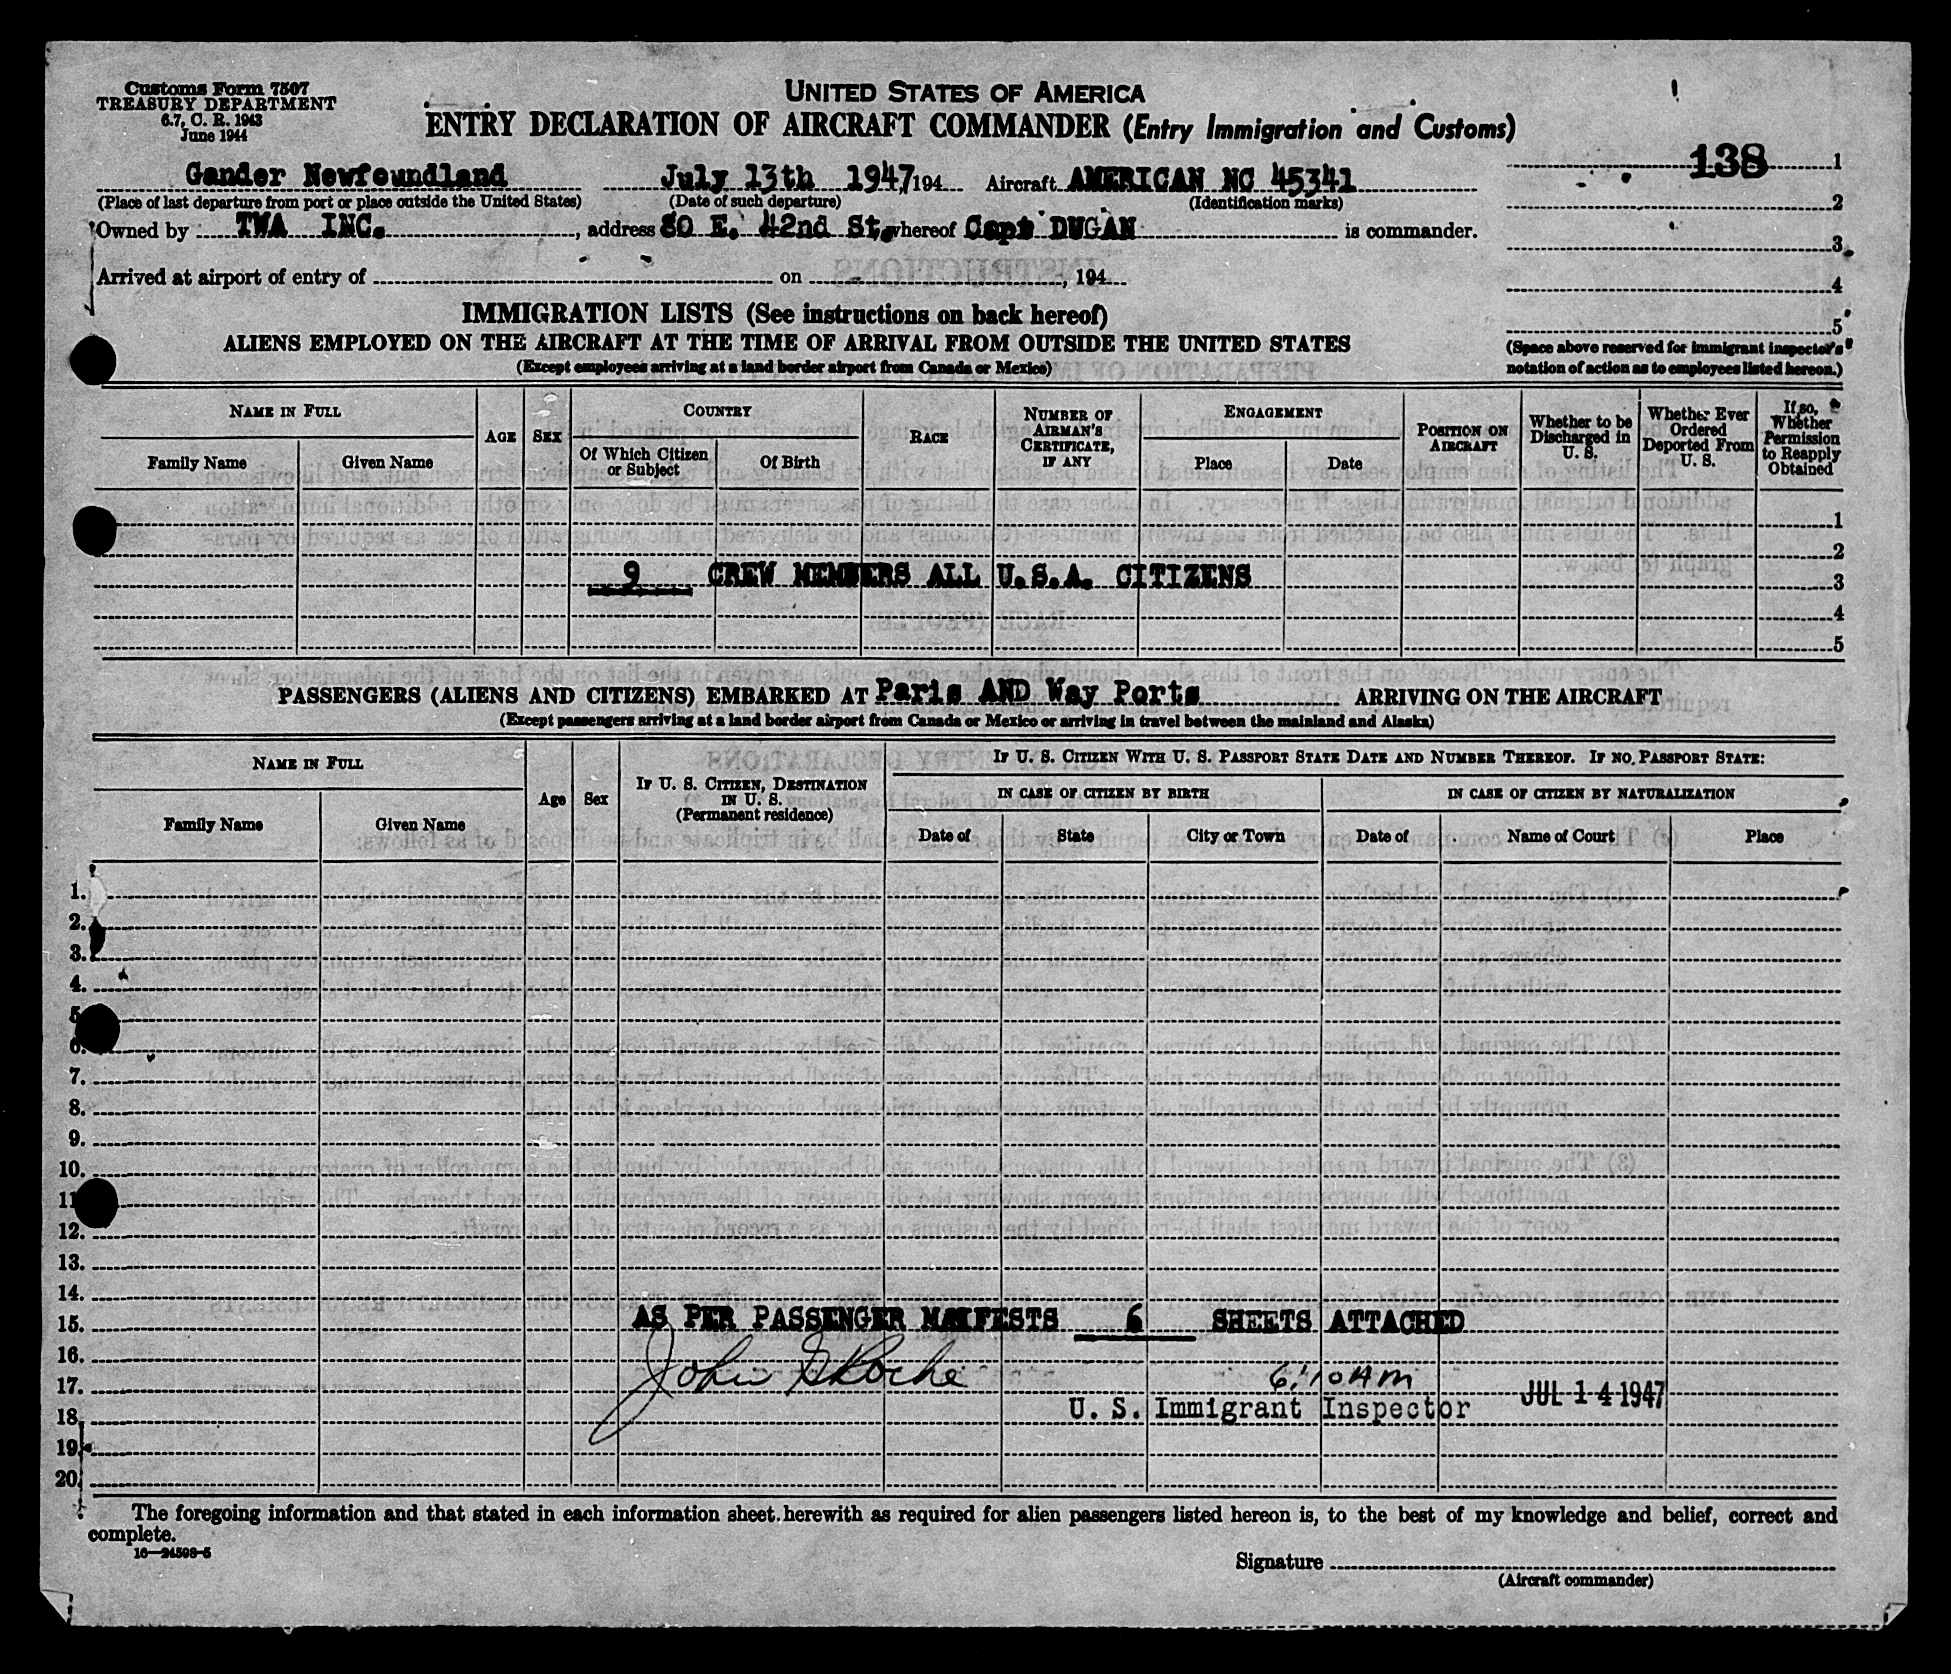 Customs Form 7507
TREASURY DEPARTMENT
6.7, C. R. 1943
June 1944
UNITED STATES OF AMERICA
ENTRY DECLARATION OF AIRCRAFT COMMANDER (Entry Immigration and Customs)
138 1
2
3
4
5
(Space above reserved for immigrant inspector's
notation of action as to employees listed hereon.)
Gander Newfoundland July 13th 1947, 194 Aircraft AMERICAN NC 45341
(Place of last departure from port or place outside the United States) (Date of such departure) (Identification marks)
Owned by TWA INC. , address 80 E. 42nd St, whereof Capt DUGAN is commander.
Arrived at airport of entry of on , 194
IMMIGRATION LISTS (See instructions on back hereof)
ALIENS EMPLOYED ON THE AIRCRAFT AT THE TIME OF ARRIVAL FROM OUTSIDE THE UNITED STATES
(Except employees arriving at a land border airport from Canada or Mexico)
NAME IN FULL
Family Name Given Name
AGE
SEX
COUNTRY
Of Which Citizen
or Subject
Of Birth
RACE
NUMBER OF
AIRMAN'S
CERTIFICATE,
IF ANY
ENGAGEMENT
Place Date
POSITION ON
AIRCRAFT
Whether to be
Discharged in
U. S.
Whether Ever
Ordered
Deported From
U. S.
If so,
Whether
Permission
to Reapply
Obtained
1
2
9 CREW MEMBERS ALL U.S.A. CITIZENS 3
4
5
PASSENGERS (ALIENS AND CITIZENS) EMBARKED AT Paris AND Way Ports ARRIVING ON THE AIRCRAFT
(Except passengers arriving at a land border airport from Canada or Mexico or arriving in travel between the mainland and Alaska)
NAME IN FULL
Family Name Given Name
Age
Sex
IF U. S. CITIZEN, DESTINATION
IN U. S.
(Permanent residence)
IF U. S. CITIZEN WITH U. S. PASSPORT STATE DATE AND NUMBER THEREOF. IF NO PASSPORT STATE:
IN CASE OF CITIZEN BY BIRTH IN CASE OF CITIZEN BY NATURALIZATION
Date of State City or Town Date of Name of Court Place
1.
2.
3.
4.
5
6.
7.
8.
9.
10.
11
12.
13.
14.
15. AS PER PASSENGER MANIFESTS 6 SHEETS ATTACHED
16. John G Roche
17. 6:10 AM JUL 14 1947
18. U. S. Immigrant Inspector
19.
20.
The foregoing information and that stated in each information sheet herewith as required for alien passengers listed hereon is, to the best of my knowledge and belief, correct and
complete.
16—24598-5
Signature
(Aircraft commander)